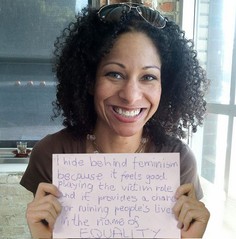 I hide behind feminism
because it feels good
playing the victim role
and it provides a chance
for ruining people's lives
in the name of
EQUALITY